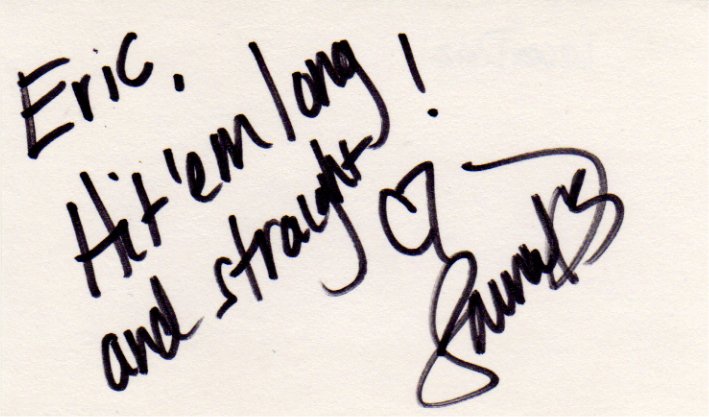 Eric,
Hit'em long
and straight!